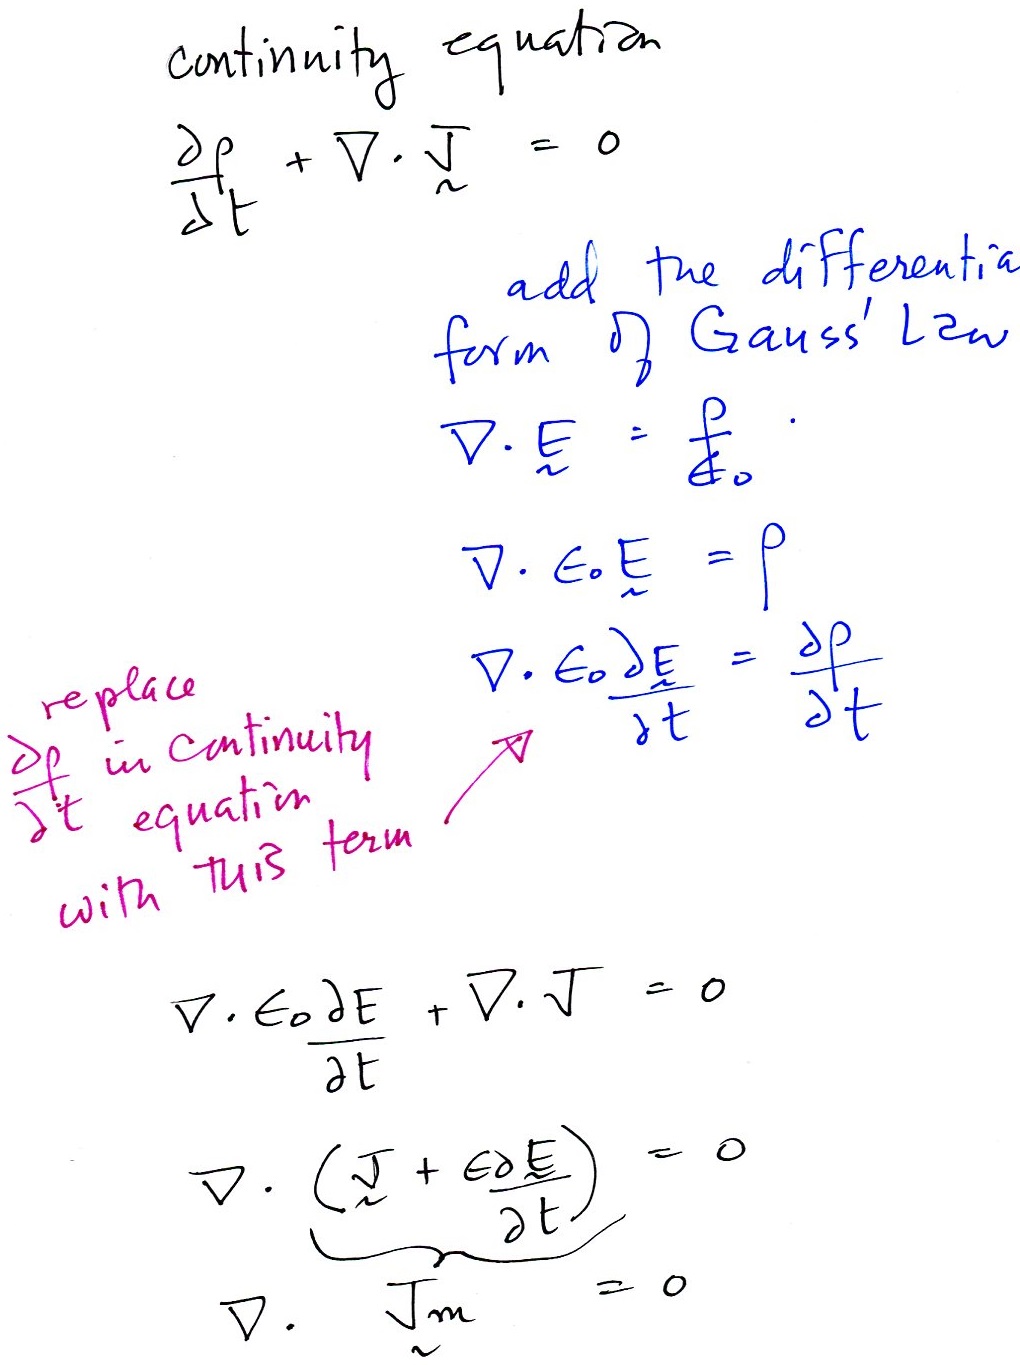 continuity equation
∂ρ/∂t + ∇ · J̰ = 0
add the differentia
form of Gauss' Law
∇ · Ḛ = ρ/ϵ₀
∇ · ϵ₀Ḛ = ρ
∇ · ϵ₀ ∂Ḛ/∂t = ∂ρ/∂t
replace
∂ρ/∂t in continuity
equation
with this term
∇ · ϵ₀ ∂E/∂t + ∇ · J = 0
∇ · (J̰ + ϵ ∂Ḛ/∂t) = 0
∇ · J̰m = 0